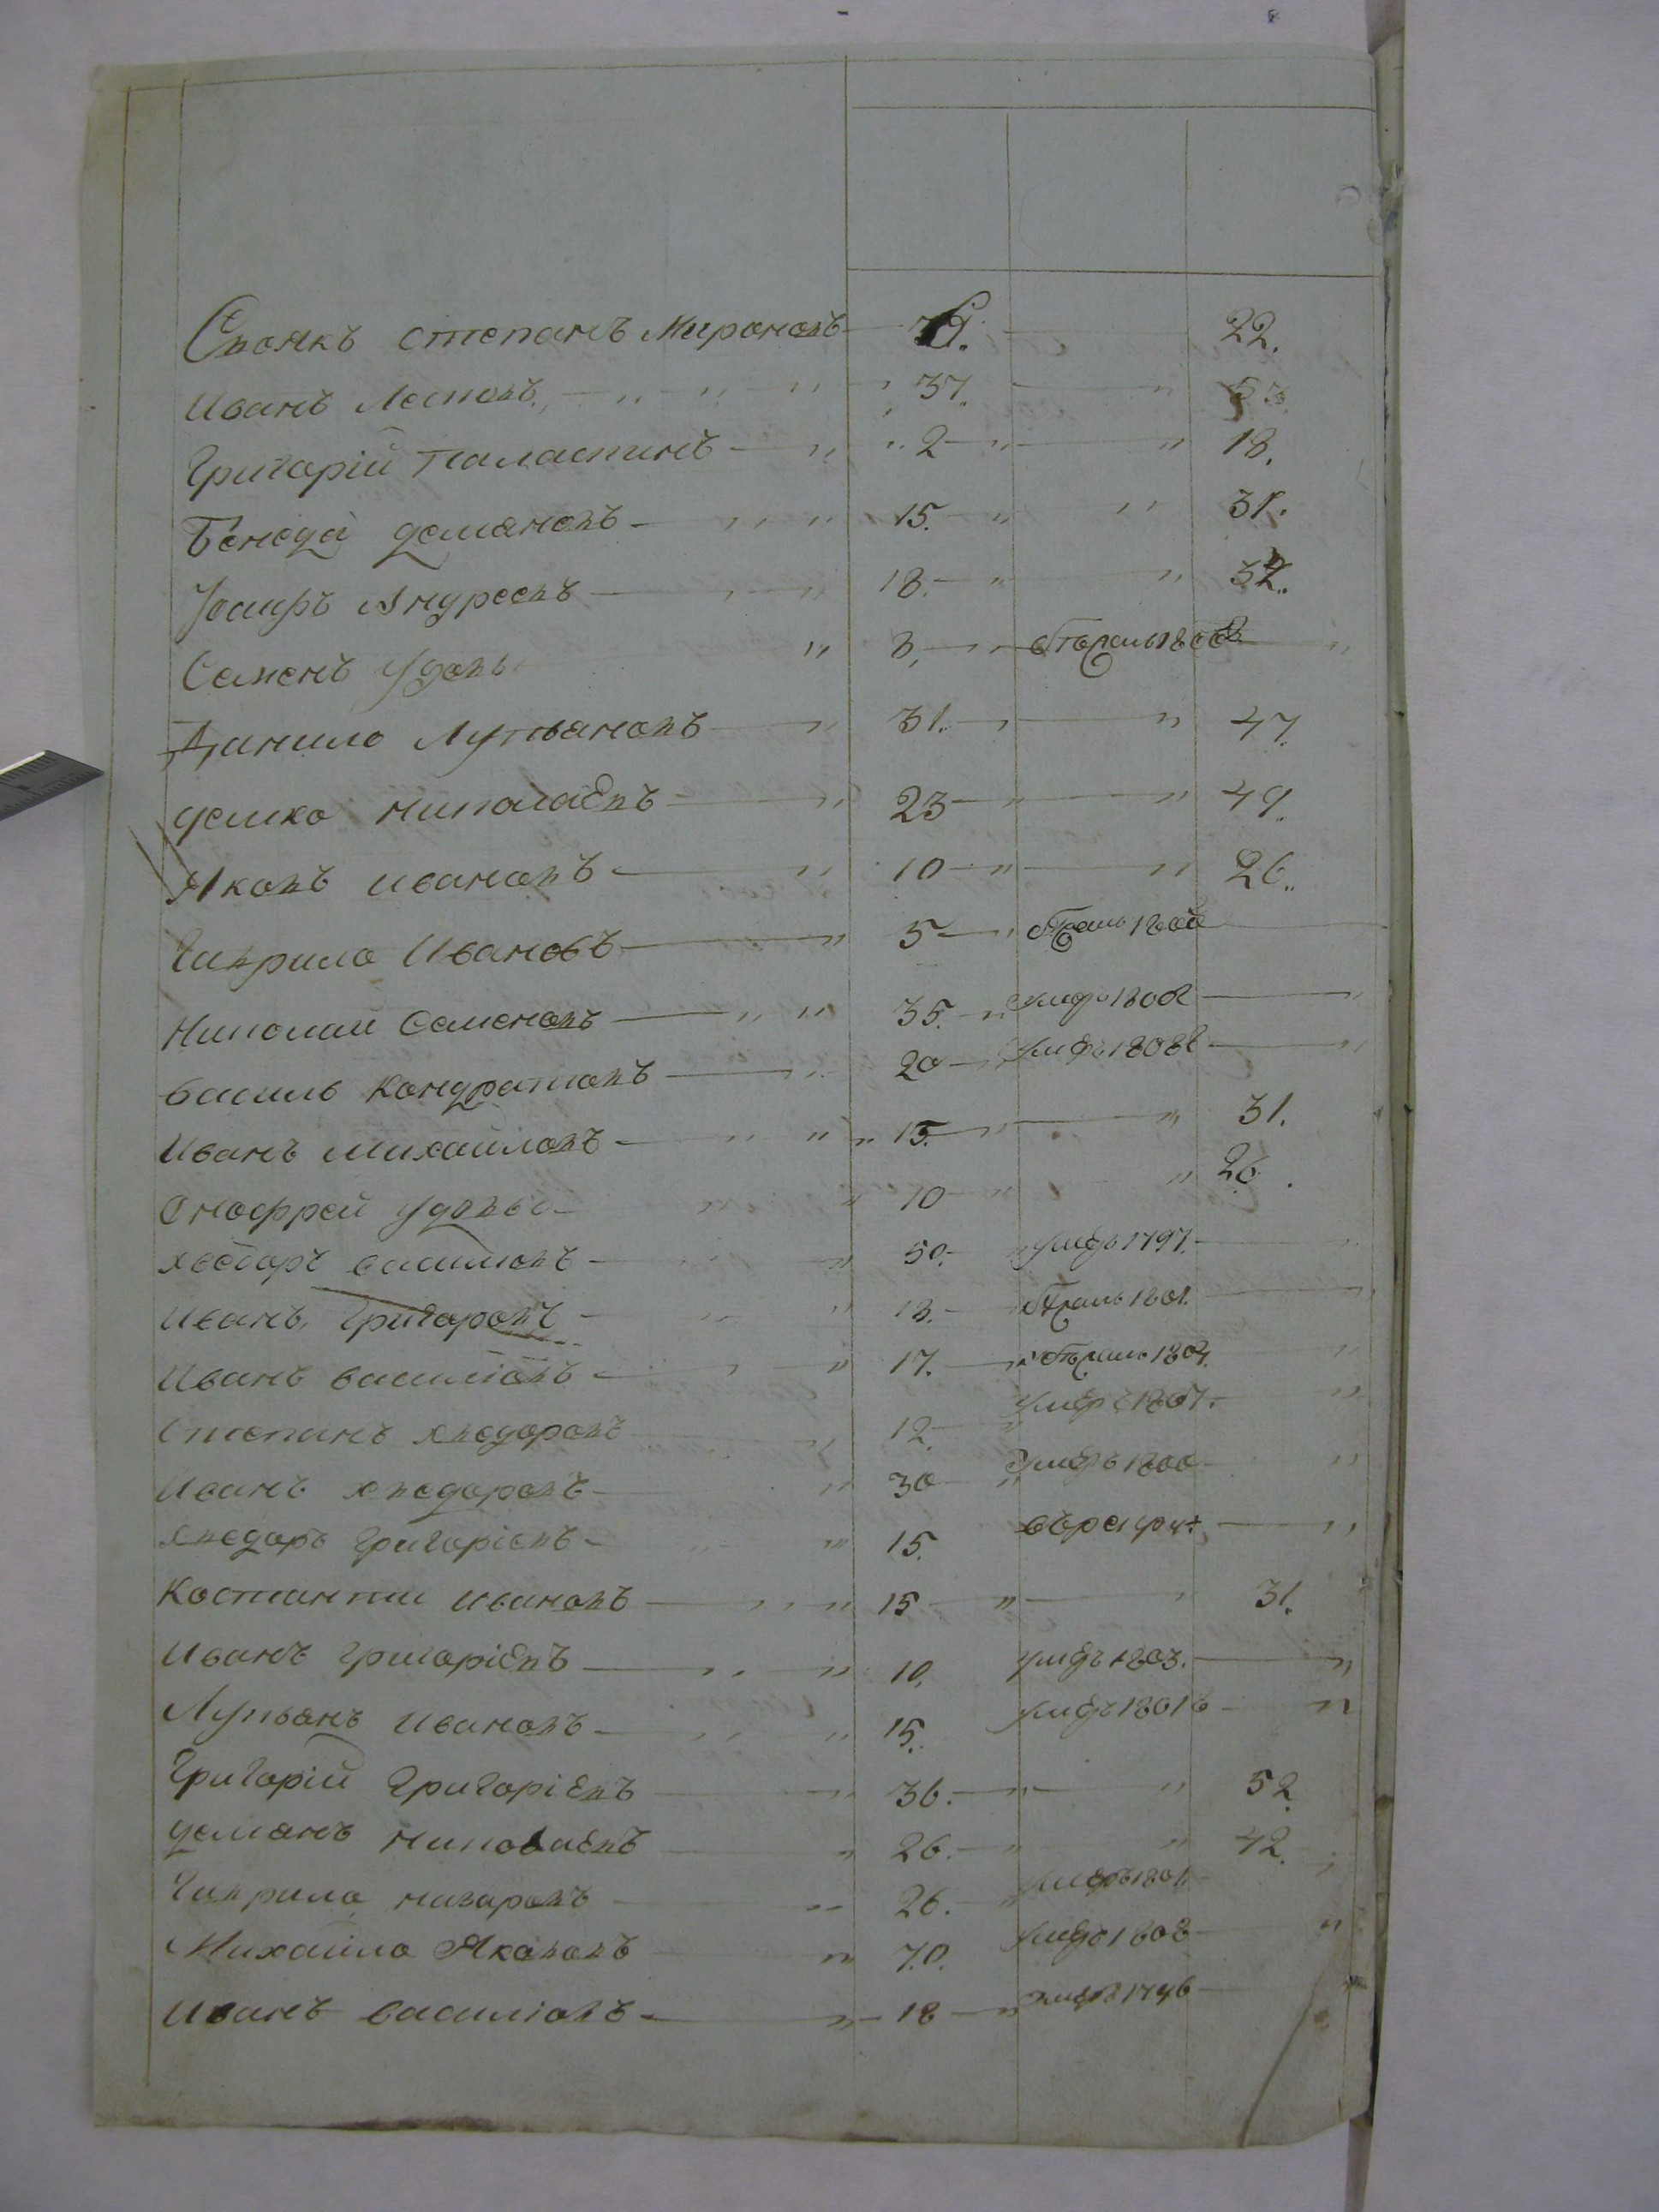 Своякъ степанъ Мироновъ 22.
Иванъ Лесковъ 37. 53
Григорій Паластинъ 2 18.
Бенеда демяновъ 15. 31.
Іосифъ Андреевъ 18. 32.
Семенъ Удовъ 3, 
Данило Лукьяновъ 31. 47.
демко николаевъ 23 49.
Яковъ ивановъ 10 26.
Гаврило Ивановъ 5
Николай Семеновъ 35. умеръ 1808
василь Кондратовъ 20 умеръ 1808
Иванъ михайловъ 15. 31.
Онофрей 10 26.
хведоръ василиовъ 50. умеръ 1797.
Иванъ Григоровъ 13. 1801.
Иванъ василіовъ 17. 1804.
Степанъ хведоровъ 12. умеръ 1807.
Иванъ хведоровъ 30 умеръ 1800
хведоръ Григоріевъ 15.
Костантий ивановъ 15 31.
Иванъ григоріевъ 10. умеръ 1803.
Лукьянъ ивановъ 15. умеръ 1801
Григорій Григоріевъ 36. 52
демянъ николаевъ 26. 42.
Гаврило назаровъ 26. умеръ 1801
Михайло Якововъ 70. умеръ 1808
иванъ василіовъ 18 умеръ 1796